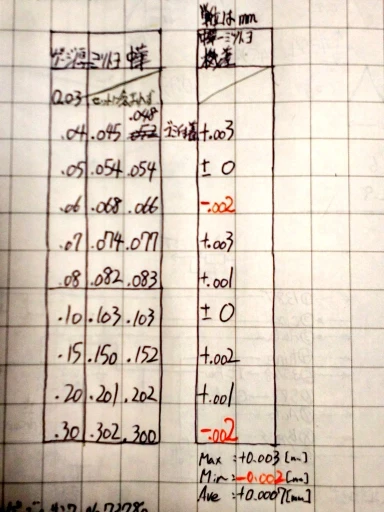 単位は mm
ゲージ厚 ミツトヨ 中華
中華-ミツトヨ
機差
0.03
.048
.04 .045 .052 +.003
.05 .054 .054 ± 0
.06 .068 .066 -.002
.07 .074 .077 +.003
.08 .082 .083 +.001
.10 .103 .103 ± 0
.15 .150 .152 +.002
.20 .201 .202 +.001
.30 .302 .300 -.002
Max :+0.003 [mm]
Min :-0.002 [mm]
Ave :+0.0007 [mm]